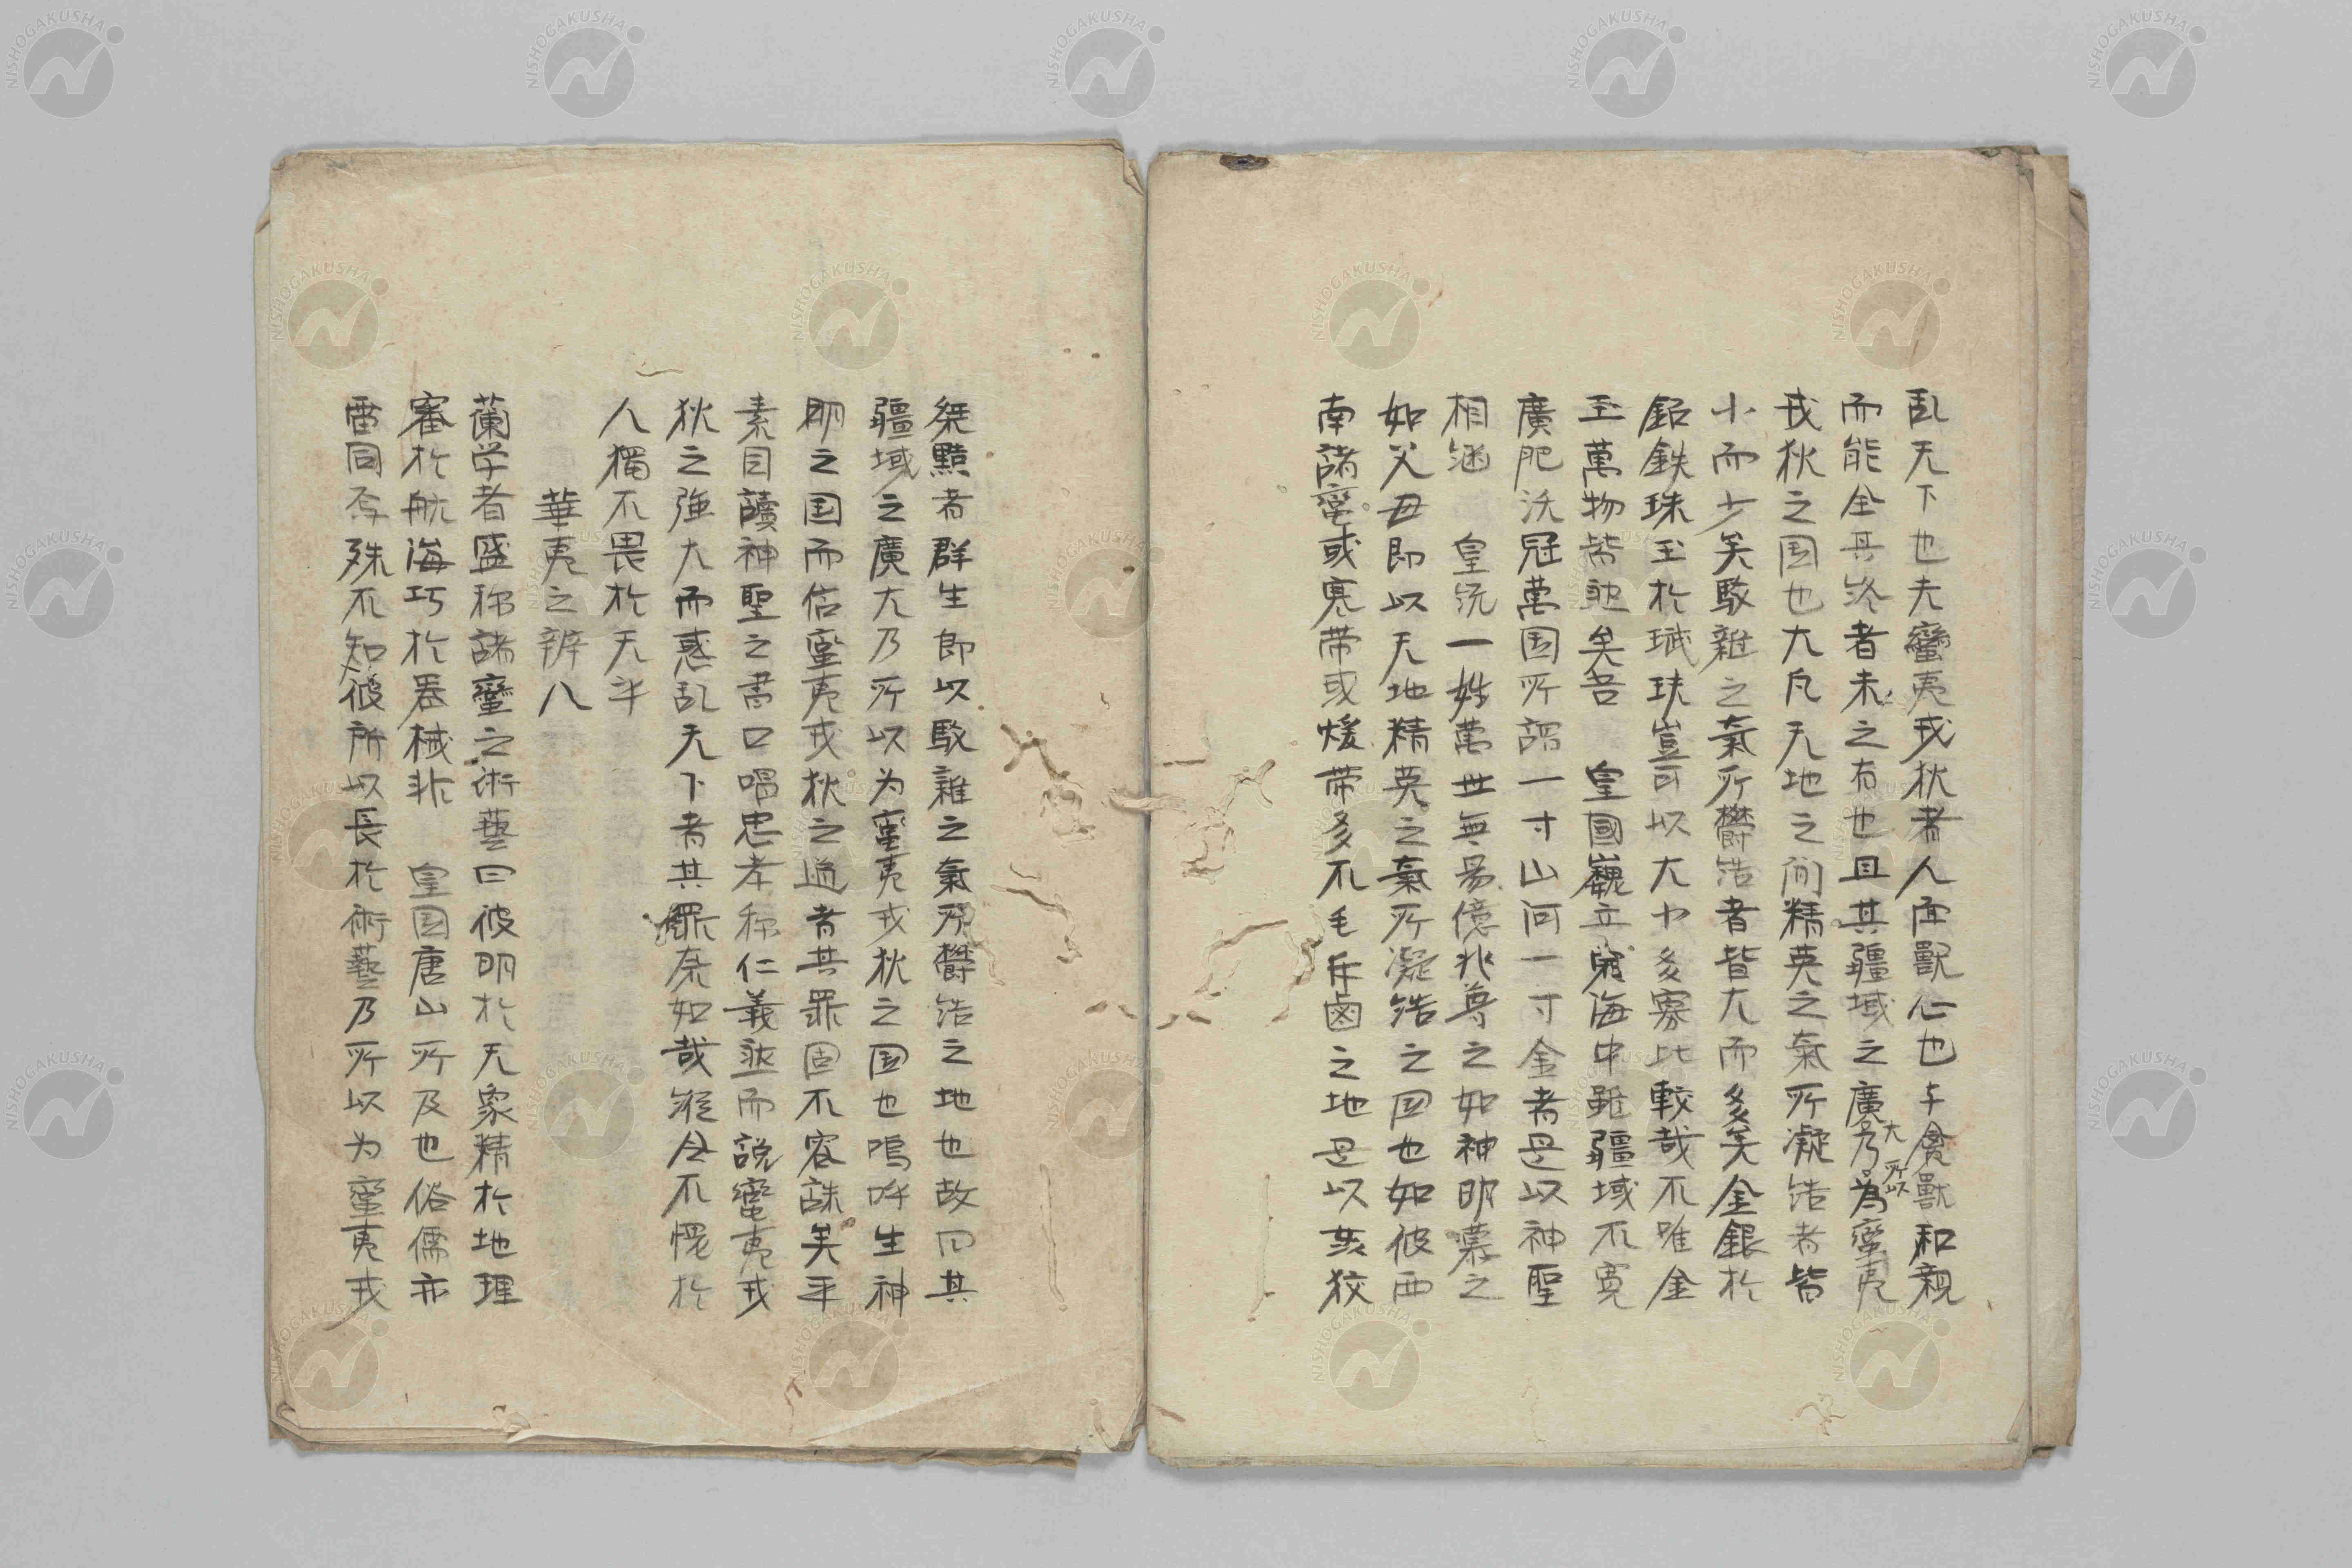 乱天下也夫蠻夷戎狄者人面獸心也与禽獸和親
而能全其終者未之有也且其疆域之廣大乃所以為蠻夷
戎狄之国也大凡天地之间精英之氣所凝结者皆
小而少矣駁雜之氣所欝结者皆大而多矣金銀於
鉛鉄珠玉於珷玞豈可以大小多寡比較哉不唯金
玉萬物皆迚矣吾　皇國巍立海中雖疆域不寛
廣肥沃冠萬国所謂一寸山河一寸金者是以神聖
相　皇统一姓萬世無易億兆尊之如神明慕之
如父母即以天地精英之氣所凝结之国也如彼西
南諸蛮或寒带或煖带多不毛斥鹵之地是以亥狡
桀黠者群生即以駁雜之氣所欝结之地也故曰其
疆域之廣大乃所以为蛮夷戎狄之国也嗚呼生神
明之国而信蛮夷戎狄之道者其罪固不容誅矣平
素目讀神聖之書口唱忠孝称仁義迚而説蠻夷戎
狄之強大而惑乱天下者其罪奈如哉縦令不愧於
人獨不畏於天乎
華夷之辨八
蘭学者盛称諸蠻之術藝曰彼明於天象精於地理
審於航海巧於器械非　皇国唐山所及也俗儒亦
雷同唇殊不知彼所以長於術藝乃所以为蛮夷戎